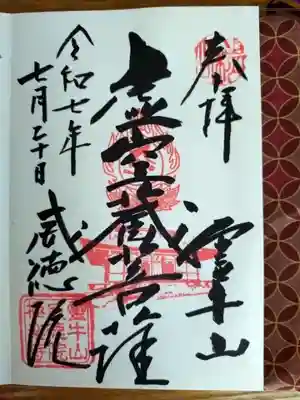 奉拝
霊牛山
虚空蔵菩薩
令和七年
七月二十日
威徳院